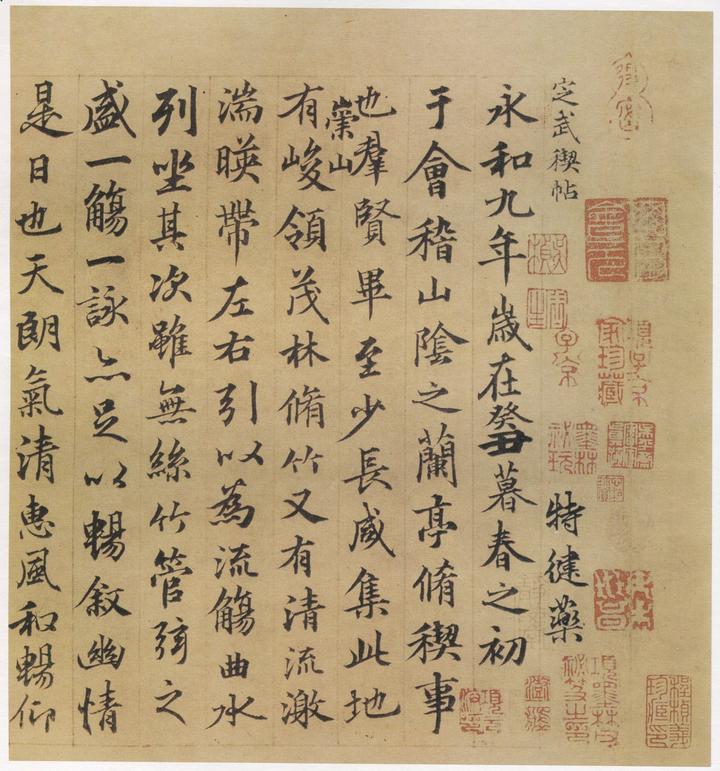 定武禊帖
特健藥
項子京家珍藏
子京
墨林秘玩
項墨林父秘笈之印
永和九年歲在癸丑暮春之初
于會稽山陰之蘭亭脩稧事
也羣賢畢至少長咸集此地
崇山
有峻領茂林脩竹又有清流激
湍暎帶左右引以為流觴曲水
列坐其次雖無絲竹管弦之
盛一觴一詠亦足以暢敘幽情
是日也天朗氣清惠風和暢仰